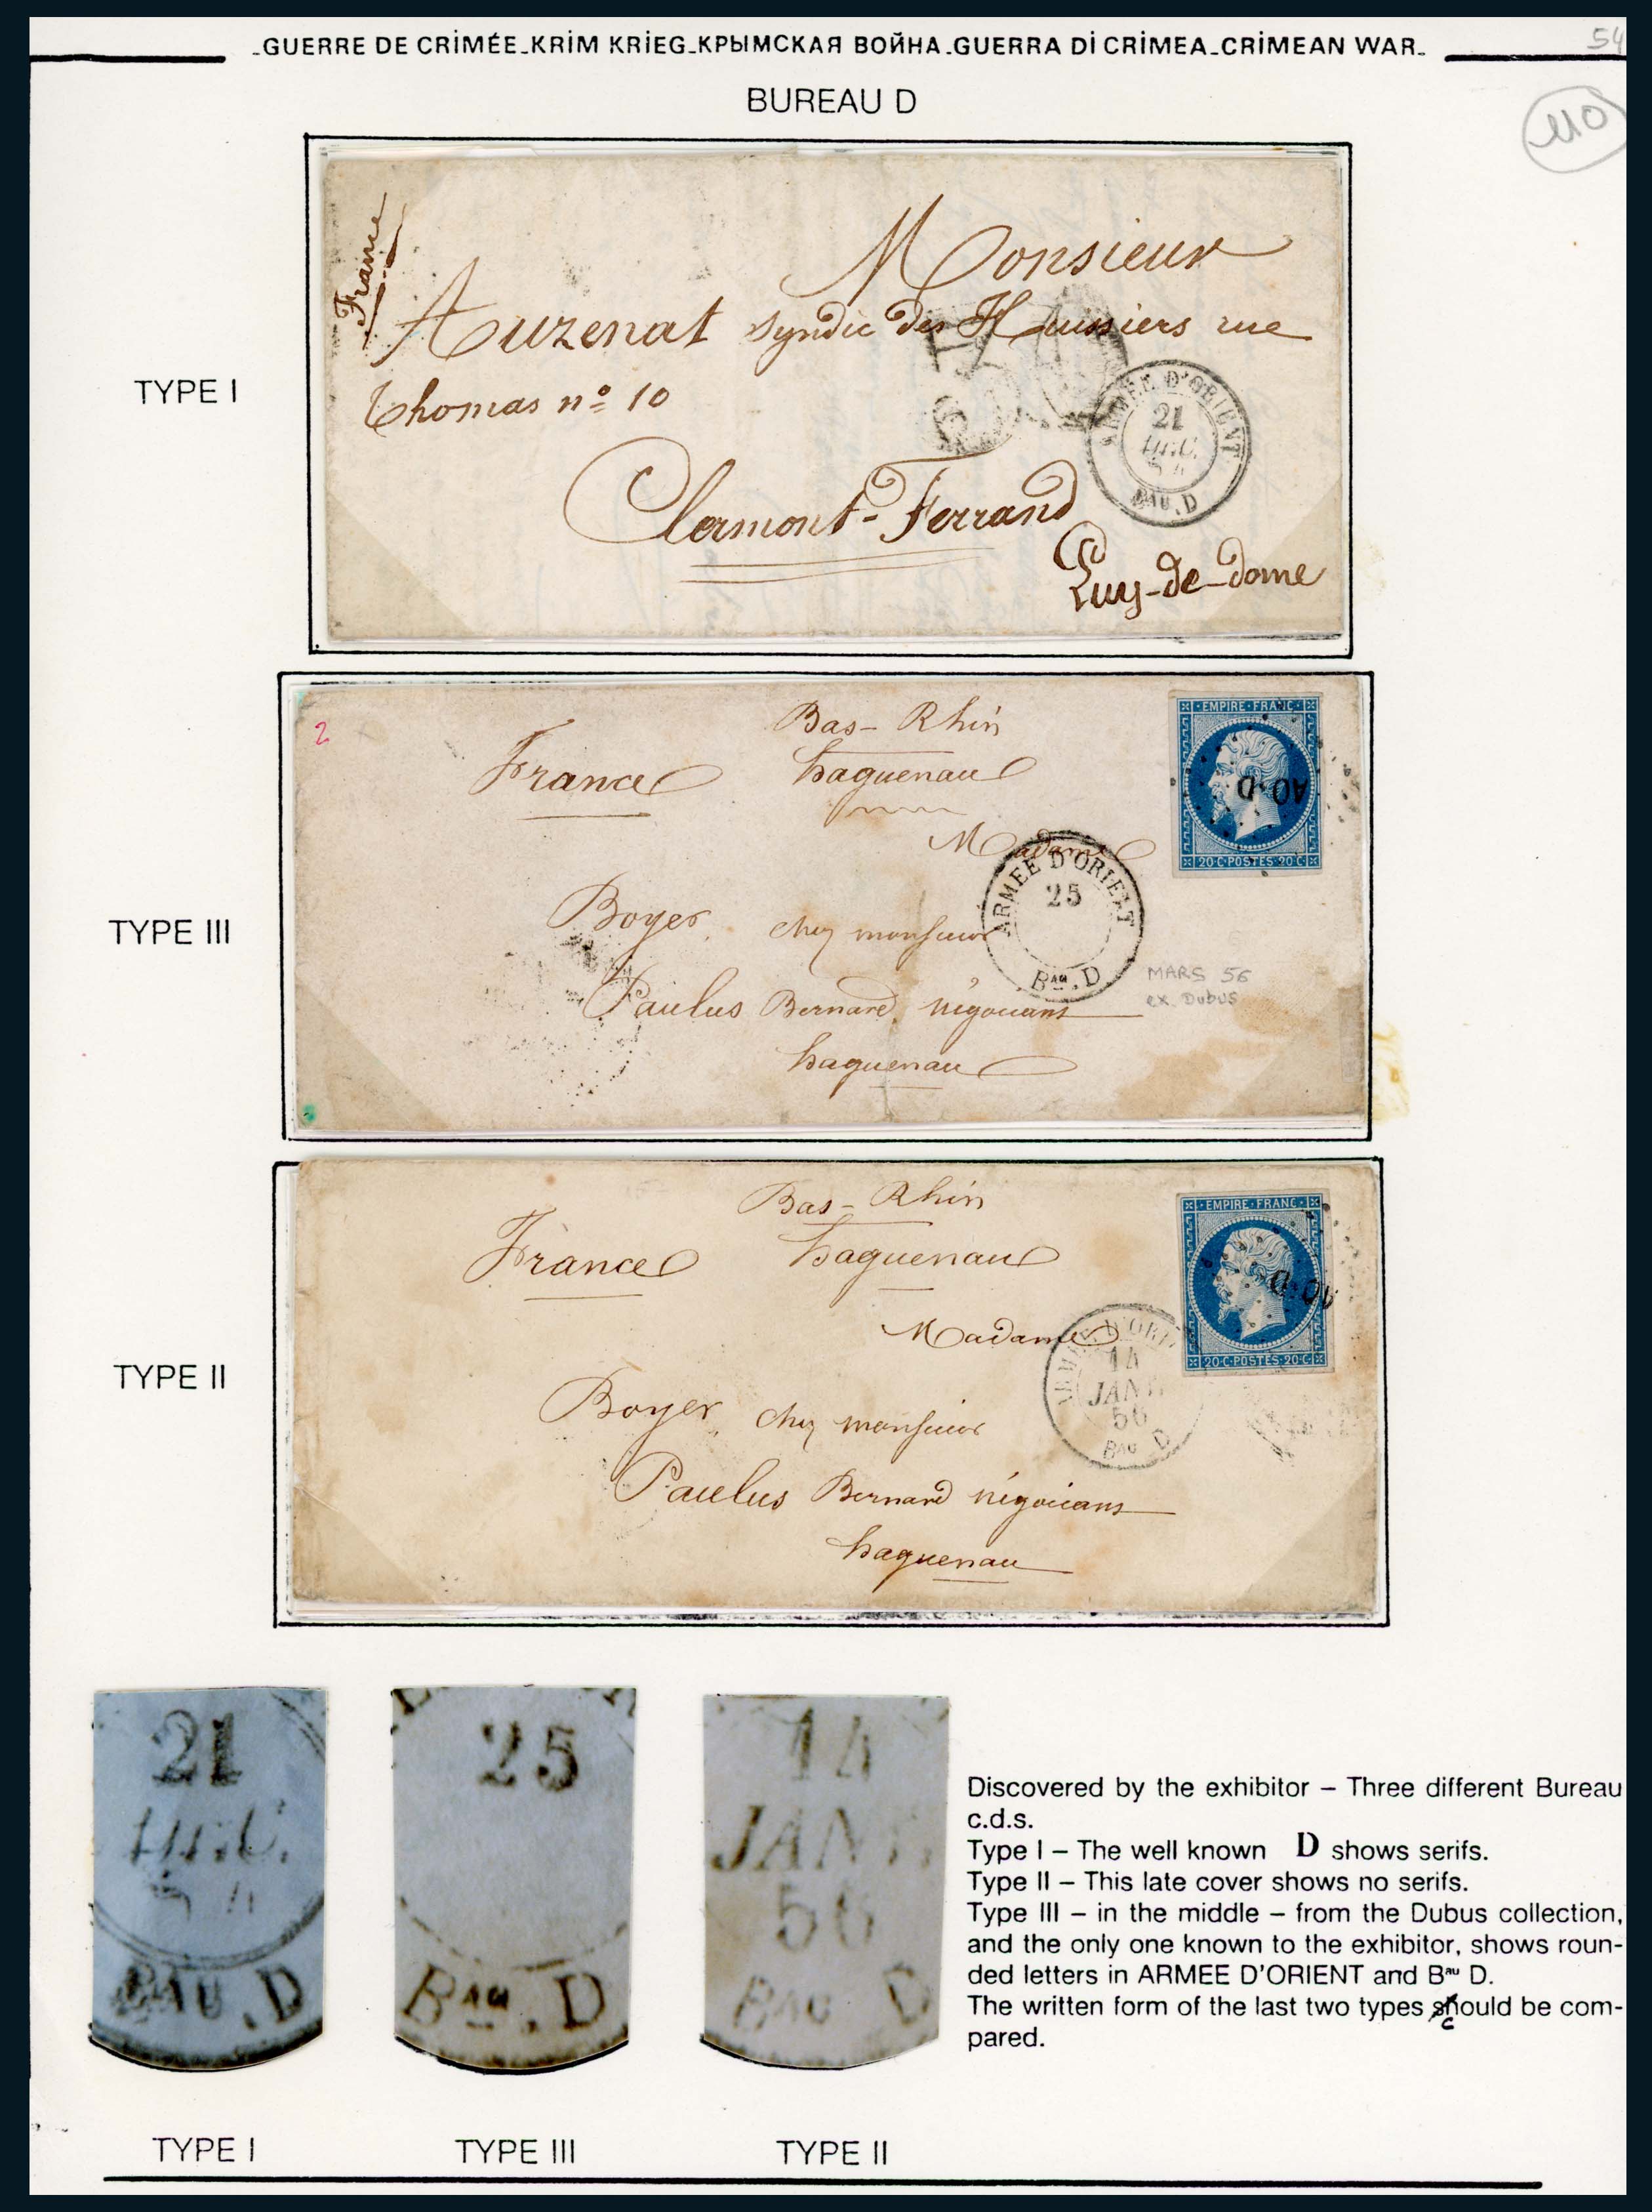 -GUERRE DE CRİMÉE-KRİM KRİEG-КРЫМСКАЯ ВОЙНА-GUERRA Dİ CRİMEA-CRİMEAN WAR-
54
110
BUREAU D
TYPE I
France
Monsieur
Auzenat syndic des Huissiers rue
Thomas nº 10
Clermont-Ferrand
Puy-de-dome
ARMÉE D'ORIENT
21
54
BAU. D
TYPE III
2
Bas-Rhin
France haguenau
Madame
Boyer, chez monsieur
Paulus Bernard, négocians
haguenau
EMPIRE FRANC
AO·D
20·C·POSTES·20·C
ARMEE D'ORIENT
25
Bau. D
MARS 56
ex. Dubus
TYPE II
Bas-Rhin
France haguenau
Madame
Boyer, chez monsieur
Paulus Bernard négocians
haguenau
EMPIRE FRANC
AO·D
20·C·POSTES·20·C
ARMÉE D'ORI
14
JANV.
56
BAU D
21
54
BAU. D
25
Bau. D
14
JANV.
56
BAU D
Discovered by the exhibitor – Three different Bureau
c.d.s.
Type I – The well known D shows serifs.
Type II – This late cover shows no serifs.
Type III – in the middle – from the Dubus collection,
and the only one known to the exhibitor, shows roun-
ded letters in ARMEE D'ORIENT and Bau D.
The written form of the last two types could be com-
pared.
TYPE I
TYPE III
TYPE II